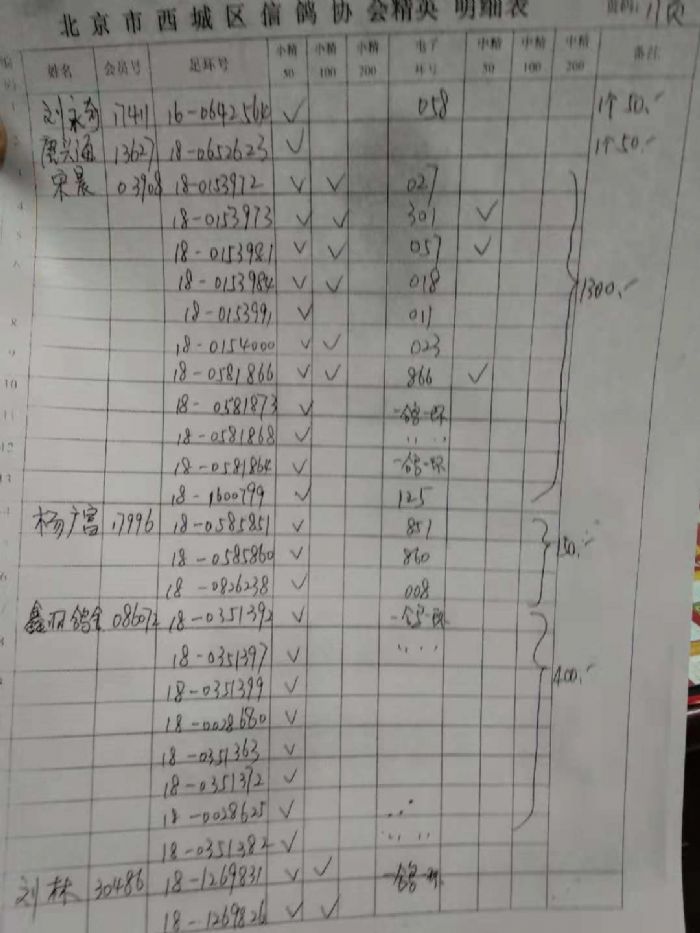 北京市西城区信鸽协会精英 明细表
姓名 会员号 足环号 小精50 小精100 小精200 电子环号 中精50 中精100 中精200 备注
刘永奇 17411 16-0642564 ✓ 058 1个50.-
唐兴通 13627 18-0652623 ✓ 1个50.-
宋晨 03908 18-0153972 ✓ ✓ 027
18-0153973 ✓ ✓ 301 ✓
18-0153981 ✓ ✓ 057 ✓
18-0153984 ✓ ✓ 018
18-0153991 ✓ 011 1300.-
18-0154000 ✓ ✓ 023
18-0581866 ✓ ✓ 866 ✓
18-0581873 ✓ 一鸽一环
18-0581868 ✓ 〃 〃
18-0581864 ✓ 一鸽一环
18-1600799 ✓ 125
杨广富 17996 18-0585851 ✓ 851
18-0585860 ✓ 860 150.-
18-0826238 ✓ 008
086072 18-0351392 ✓ 一鸽一环
18-0351397 ✓ 〃 〃
18-0351399 ✓ 400.-
18-0028680 ✓
18-0351363 ✓
18-0351372 ✓
18-0028625 ✓
18-0351382 ✓ 〃 〃
刘林 30486 18-1269831 ✓ ✓ 一鸽一环
18-1269826 ✓ ✓